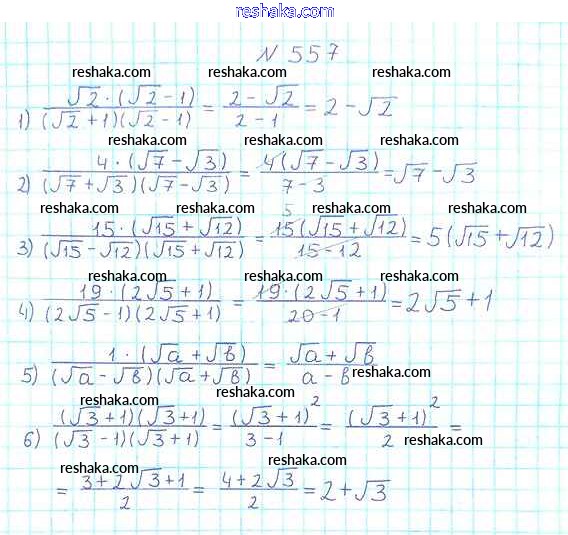 reshaka.com
N 557
reshaka.com reshaka.com reshaka.com
1) √2·(√2-1)/(√2+1)(√2-1) = 2-√2/2-1 = 2-√2
reshaka.com reshaka.com reshaka.com
2) 4·(√7-√3)/(√7+√3)(√7-√3) = 4(√7-√3)/7-3 = √7-√3
reshaka.com reshaka.com reshaka.com
3) 15·(√15+√12)/(√15-√12)(√15+√12) = 5 15(√15+√12)/15-12 = 5(√15+√12)
reshaka.com reshaka.com reshaka.com
4) 19·(2√5+1)/(2√5-1)(2√5+1) = 19·(2√5+1)/20-1 = 2√5+1
reshaka.com reshaka.com
5) 1·(√a+√b)/(√a-√b)(√a+√b) = √a+√b/a-b
reshaka.com
reshaka.com reshaka.com
6) (√3+1)(√3+1)/(√3-1)(√3+1) = (√3+1)²/3-1 = (√3+1)²/2 =
reshaka.com
reshaka.com reshaka.com
= 3+2√3+1/2 = 4+2√3/2 = 2+√3
reshaka.com reshaka.com reshaka.com